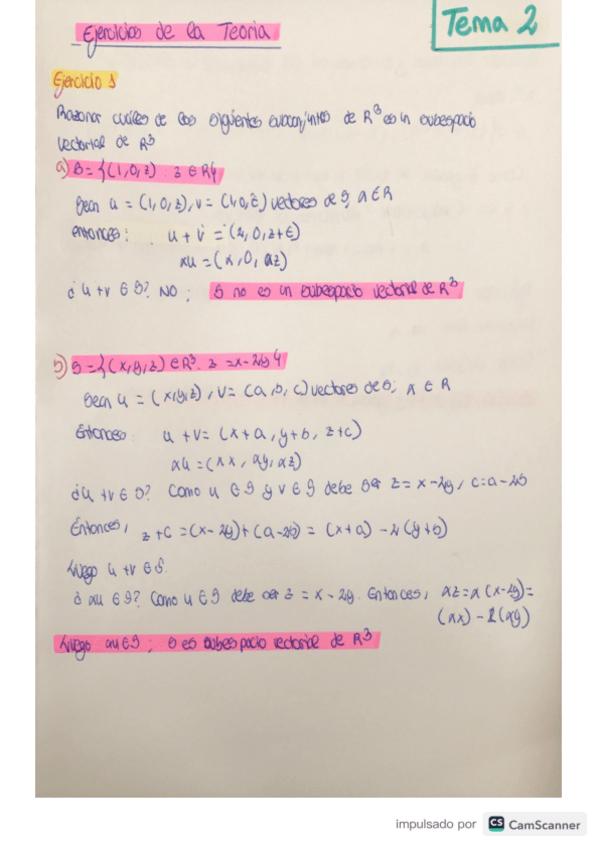 Ejercicios de la Teoría
Tema 2
Ejercicio 1
Razonar cuáles de los siguientes subconjuntos de R³ es un subespacio
vectorial de R³
a) S={(1,0,z) : z ∈ R}
Sean u = (1,0,z), v = (1,0,t) vectores de S, α ∈ R
entonces: u + v = (2,0,z+t)
αu = (α,0,αz)
¿u+v ∈ S? NO; S no es un subespacio vectorial de R³
b) S={(x,y,z) ∈ R³ : z = x-2y}
Sean u = (x,y,z), v = (a,b,c) vectores de S; α ∈ R
Entonces u + v = (x+a, y+b, z+c)
αu = (αx, αy, αz)
¿u+v ∈ S? Como u ∈ S y v ∈ S debe ser z = x-2y, c=a-2b
Entonces, z+c = (x-2y)+(a-2b) = (x+a) - 2(y+b)
Luego u+v ∈ S.
¿αu ∈ S? Como u ∈ S debe ser z = x-2y. Entonces, αz=α(x-2y)=
(αx)-2(αy)
Luego αu ∈ S; S es subespacio vectorial de R³
impulsado por CS CamScanner